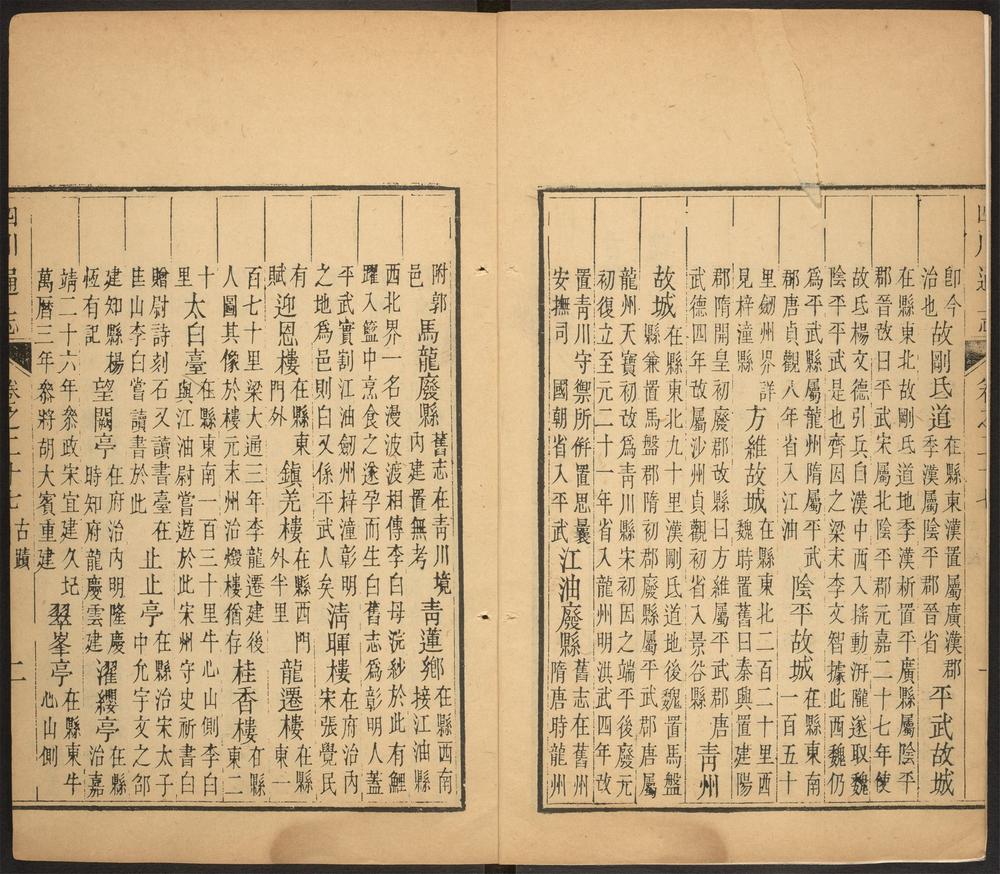 卽今治也 故剛氐道 在縣東漢置屬廣漢郡季漢屬陰平郡晉省 平武故城
在縣東北故剛氐道地季漢析置平廣縣屬陰平
郡晉改曰平武宋屬北陰平郡元嘉二十七年使
故氐楊文德引兵自漢中西入搖動汧隴遂取魏
陰平平武是也齊因之梁末李文智據此西魏仍
爲平武縣屬龍州隋屬平武郡唐貞觀八年省入江油 陰平故城 在縣東南一百五十
里劒州界詳見梓潼縣 方維故城 在縣東北二百二十里西魏時置舊曰秦興置建陽
郡隋開皇初廢郡改縣曰方維屬平武郡唐武德四年改屬沙州貞觀初省入景谷縣 靑州
故城 在縣東北九十里漢剛氐道地後魏置馬盤縣兼置馬盤郡隋初郡廢縣屬平武郡唐屬
龍州天寶初改爲靑川縣宋初因之端平後廢元
初復立至元二十一年省入龍州明洪武四年改
置靑川守禦所倂置思曩安撫司 國朝省入平武 江油廢縣 舊志在舊州隋唐時龍州
附郭邑 馬龍廢縣 舊志在靑川境內建置無考 靑蓮鄉 在縣西南接江油縣
西北界一名漫波渡相傳李白母浣紗於此有鯉
躍入籃中烹食之遂孕而生白舊志爲彰明人蓋
平武實割江油劒州梓潼彰明之地爲邑則白又係平武人矣 淸暉樓 在府治內宋張覺民
有賦 迎恩樓 在縣東門外 鎭羌樓 在縣西門外半里 龍遷樓 在縣東一
百七十里梁大通三年李龍遷建後人圖其像於樓元末州治燬樓猶存 桂香樓 在縣東二
十里 太白臺 在縣東南一百三十里牛心山側李白與江油尉嘗遊於此宋州守史祈書白
贈尉詩刻石又讀書臺在匡山李白嘗讀書於此 止止亭 在縣治宋太子中允宇文之邵
建知縣楊恆有記 望闕亭 在府治內明隆慶時知府龍慶雲建 濯纓亭 在縣治嘉
靖二十六年叅政宋宜建久圮萬曆三年叅將胡大賓重建 翠峯亭 在縣東牛心山側
四川通志 卷之二十七 古蹟 二